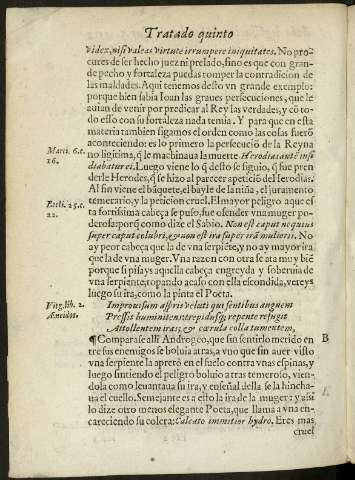 Tratado quinto
videx, nisi valeas virtute irrumpere iniquitates. No pro-
cures de ser hecho juez ni prelado, sino es que con gran-
de pecho y fortaleza puedas romper la contradicion de
las maldades. Aqui tenemos desto vn grande exemplo:
porque bien sabia Ioan las graues persecuciones, que le
auian de venir por predicar al Rey las verdades, y cõ to-
do esso con su fortaleza nada temia. Y para que en esta
materia tambien sigamos el orden como las cosas fuerõ
aconteciendo: es lo primero la persecuciõ de la Reyna
Marci. 6. c.
16.
no ligitima, q̃ le machinaua la muerte. Herodias autẽ insi
diabatur ei. Luego viene lo q̃ desto se siguio, q̃ fue pren
derle Herodes, q̃ se hizo al parecer apeticiõ del herodias.
Al fin viene el bãquete, el bayle de la niña, el juramento
temerario, y la peticion cruel. El mayor peligro aque es
Eccli. 25. c.
22.
ta fortissima cabeça se puso, fue ofender vna muger po-
derosa: porq̃ como dize el Sabio. Non est caput nequius
super caput colubri, & non est ira super irã mulieris. No
ay peor cabeça que la de vna serpiẽte, y no ay mayor ira
que la de vna muger. Vna razon con otra se ata muy biẽ
porque si pisays aquella cabeça engreyda y soberuia de
vna serpiente, topando acaso con ella escondida, vereys
luego su ira, como la pinta el Poeta.
Virg. lib. 2.
Æneidos.
Improuisum aspris veluti qui sentibus anguem
Pressit humi nitens, trepidusq; repente refugit
Attollentem iras, & cœrula colla tumentem,
¶ Comparase alli Androgeo, que sin sentirlo metido en
B
tre sus enemigos se boluia atras, a vno que sin auer visto
vna serpiente la apretò en el suelo contra vnas espinas, y
luego sintiendo el peligro boluio a tras temeroso, vien-
dola como leuantaua su ira, y en señal della se la hincha-
ua el cuello. Semejante es a esto la ira de la muger: y assi
lo dize otro menos elegante Poeta, que llama a vna en-
careciendo su colera: Calcato immitior hydro. Eres mas
cruel